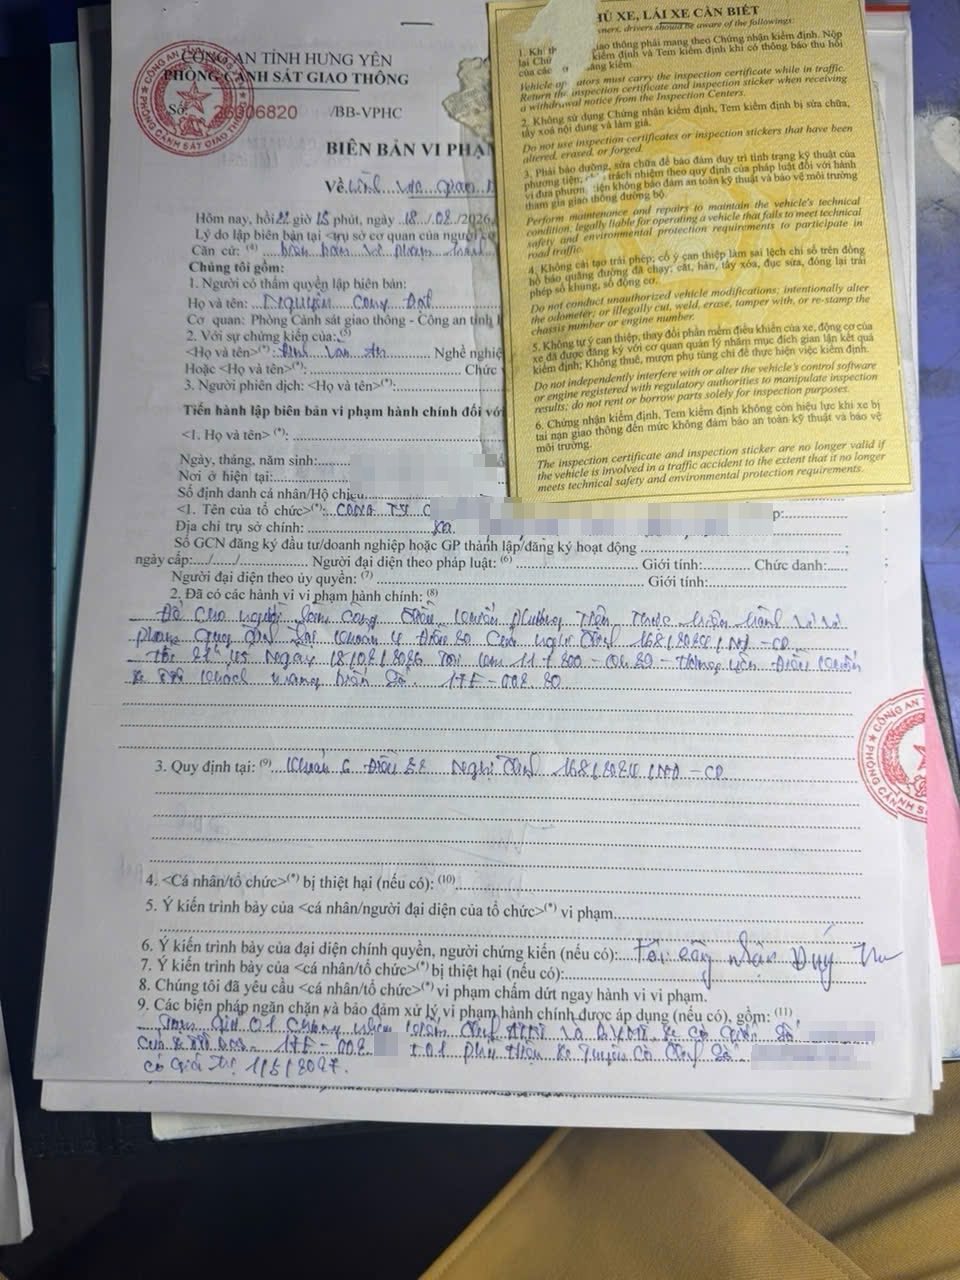 CÔNG AN TỈNH HƯNG YÊN
PHÒNG CẢNH SÁT GIAO THÔNG
Số: 26006820 /BB-VPHC
BIÊN BẢN VI PHẠ
Về
Hôm nay, hồi 22 giờ 15 phút, ngày 18/08/2026
Lý do lập biên bản tại <trụ sở cơ quan của người
Căn cứ: (4)
Chúng tôi gồm:
1. Người có thẩm quyền lập biên bản:
Họ và tên: Nguyễn Công
Cơ quan: Phòng Cảnh sát giao thông - Công an tỉnh
2. Với sự chứng kiến của: (5)
<Họ và tên>(*): Đinh Văn Nghề nghiệ
Hoặc <Họ và tên>(*): Chức
3. Người phiên dịch: <Họ và tên>(*):
Tiến hành lập biên bản vi phạm hành chính đối với
<1. Họ và tên>(*):
Ngày, tháng, năm sinh:
Nơi ở hiện tại:
Số định danh cá nhân/Hộ chiếu
<1. Tên của tổ chức>(*): CÔNG TY
Địa chỉ trụ sở chính: Xã
Số GCN đăng ký đầu tư/doanh nghiệp hoặc GP thành lập/đăng ký hoạt động
ngày cấp:..../..../.... Người đại diện theo pháp luật: (6) Giới tính: Chức danh:
Người đại diện theo ủy quyền: (7) Giới tính:
2. Đã có các hành vi vi phạm hành chính: (8)
Để cho người làm công điều khiển phương tiện thực hiện hành vi vi
phạm quy định tại khoản 4 Điều 20 của nghị định 168/2024/NĐ-CP
Ngày 18/08/2026 Tại km 11+200 - điều khiển
xe khách mang biển số 17F-002.80
3. Quy định tại: (9) khoản 6 Điều 32 Nghị định 168/2024/NĐ-CP
4. <Cá nhân/tổ chức>(*) bị thiệt hại (nếu có): (10)
5. Ý kiến trình bày của <cá nhân/người đại diện của tổ chức>(*) vi phạm
6. Ý kiến trình bày của đại diện chính quyền, người chứng kiến (nếu có): Tôi công nhận
7. Ý kiến trình bày của <cá nhân/tổ chức>(*) bị thiệt hại (nếu có):
8. Chúng tôi đã yêu cầu <cá nhân/tổ chức>(*) vi phạm chấm dứt ngay hành vi vi phạm.
9. Các biện pháp ngăn chặn và bảo đảm xử lý vi phạm hành chính được áp dụng (nếu có), gồm: (11)
Tạm giữ 01 chứng nhận kiểm định ATKT và BVMT xe cơ giới số
của xe 17F-002. + 01 phù hiệu xe
có giá trị 1/5/2027.
HỦ XE, LÁI XE CẦN BIẾT
ners, drivers should be aware of the followings:
1. Khi th giao thông phải mang theo Chứng nhận kiểm định. Nộp
lại Chứ kiểm định và Tem kiểm định khi có thông báo thu hồi
của các đăng kiểm.
Vehicle op ators must carry the inspection certificate while in traffic.
Return the inspection certificate and inspection sticker when receiving
a withdrawal notice from the Inspection Centers.
2. Không sử dụng Chứng nhận kiểm định, Tem kiểm định bị sửa chữa,
tẩy xoá nội dung và làm giả.
Do not use inspection certificates or inspection stickers that have been
altered, erased, or forged.
3. Phải bảo dưỡng, sửa chữa để bảo đảm duy trì tình trạng kỹ thuật của
phương tiện; trách nhiệm theo quy định của pháp luật đối với hành
vi đưa phươn tiện không bảo đảm an toàn kỹ thuật và bảo vệ môi trường
tham gia giao thông đường bộ.
Perform maintenance and repairs to maintain the vehicle's technical
condition, legally liable for operating a vehicle that fails to meet technical
safety and environmental protection requirements to participate in
road traffic.
4. Không cải tạo trái phép; cố ý can thiệp làm sai lệch chỉ số trên đồng
hồ báo quãng đường đã chạy; cắt, hàn, tẩy xóa, đục sửa, đóng lại trái
phép số khung, số động cơ.
Do not conduct unauthorized vehicle modifications; intentionally alter
the odometer; or illegally cut, weld, erase, tamper with, or re-stamp the
chassis number or engine number.
5. Không tự ý can thiệp, thay đổi phần mềm điều khiển của xe, động cơ của
xe đã được đăng ký với cơ quan quản lý nhằm mục đích gian lận kết quả
kiểm định; Không thuê, mượn phụ tùng chỉ để thực hiện việc kiểm định.
Do not independently interfere with or alter the vehicle's control software
or engine registered with regulatory authorities to manipulate inspection
results; do not rent or borrow parts solely for inspection purposes.
6. Chứng nhận kiểm định, Tem kiểm định không còn hiệu lực khi xe bị
tai nạn giao thông đến mức không đảm bảo an toàn kỹ thuật và bảo vệ
môi trường.
The inspection certificate and inspection sticker are no longer valid if
the vehicle is involved in a traffic accident to the extent that it no longer
meets technical safety and environmental protection requirements.